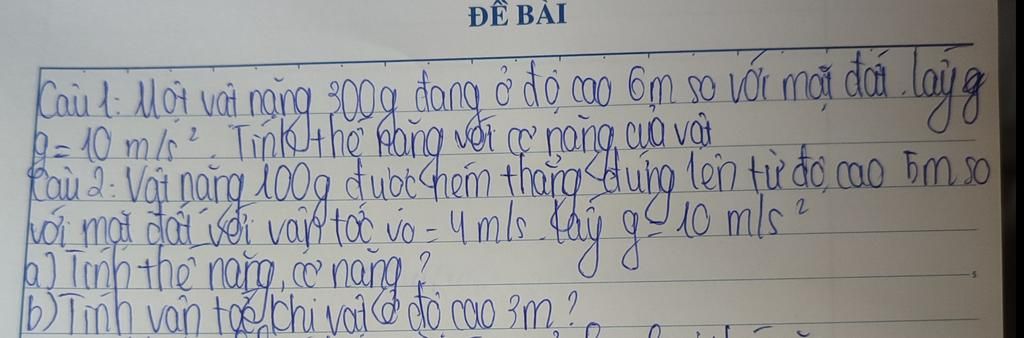 ĐỀ BÀI
Câu 1: Một vật nặng 300g đang ở độ cao 6m so với mặt đất. lấy g
g = 10 m/s². Tính thế năng với cơ năng của vật
Câu 2: Vật nặng 100g được ném thẳng đứng lên từ độ cao 5m so
với mặt đất với vận tốc vo = 4m/s. lấy g = 10 m/s²
a) Tính thế năng, cơ năng?
b) Tính vận tốc khi vật ở độ cao 3m?